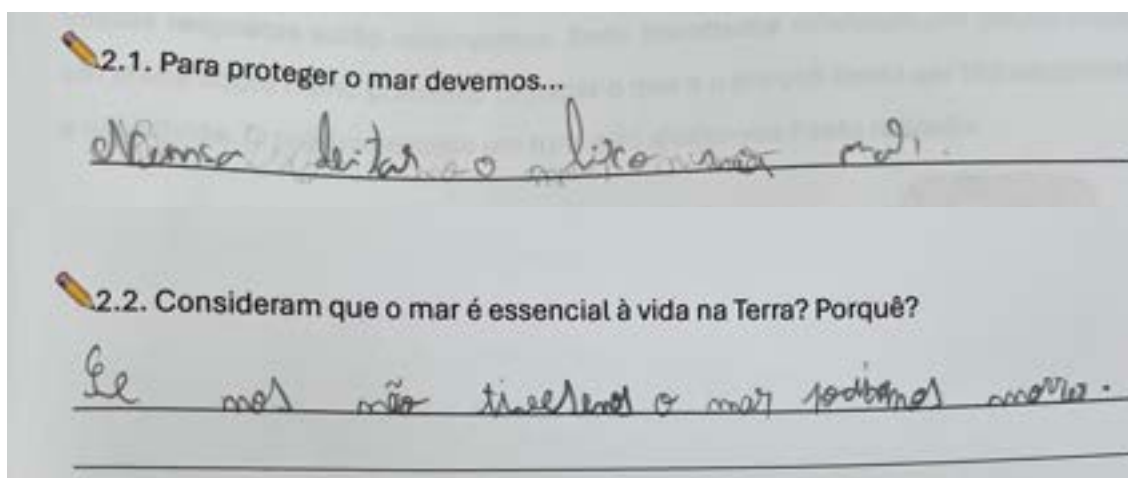 2.1. Para proteger o mar devemos...
Nunca deitar o lixo no mar.
2.2. Consideram que o mar é essencial à vida na Terra? Porquê?
Se nos não tivesemos o mar podiamos morrer.